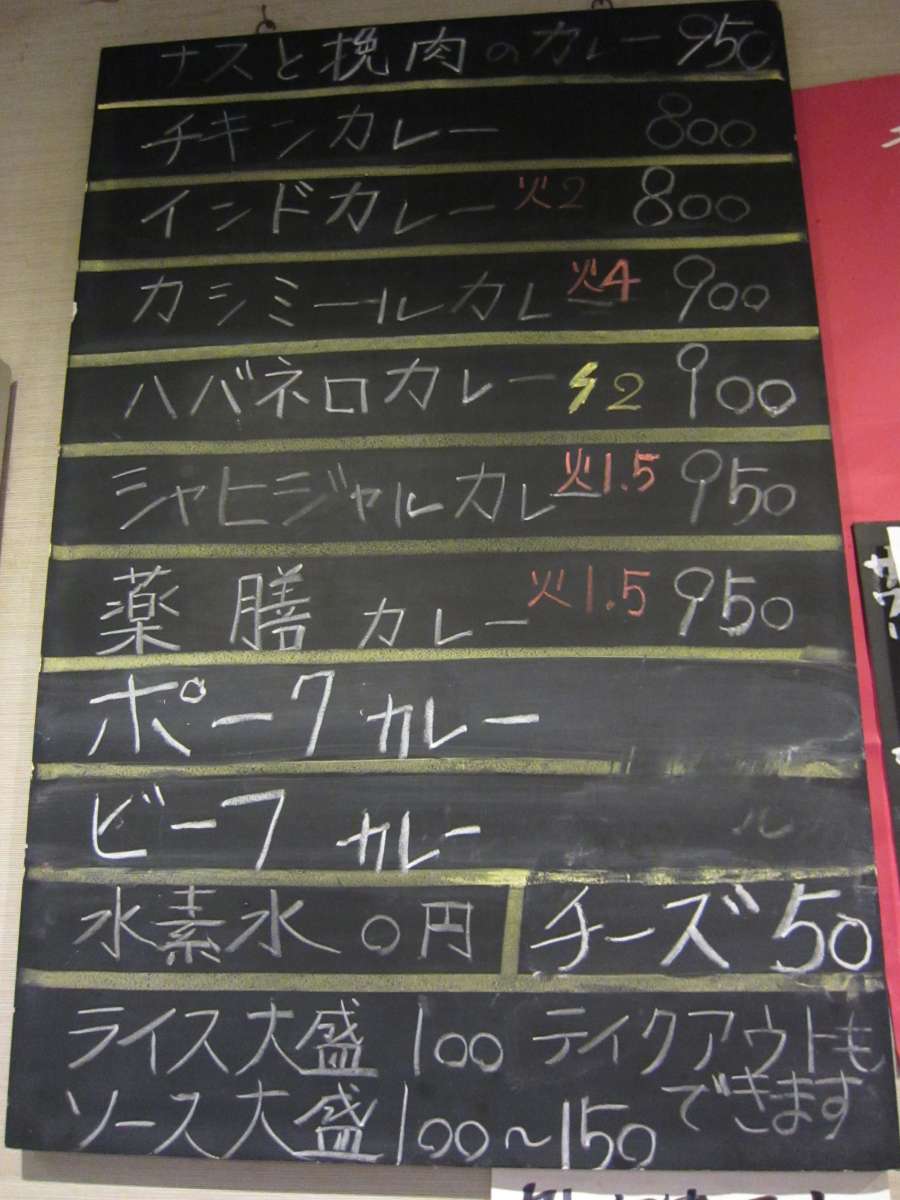 ナスと挽肉のカレー 950
チキンカレー 800
インドカレー 火2 800
カシミールカレー 火4 900
ハバネロカレー 2 900
シャヒジャルカレー 火1.5 950
薬膳カレー 火1.5 950
ポークカレー
ビーフカレー
水素水 0円 チーズ 50
ライス大盛 100 テイクアウトも
できます
ソース大盛 100～150